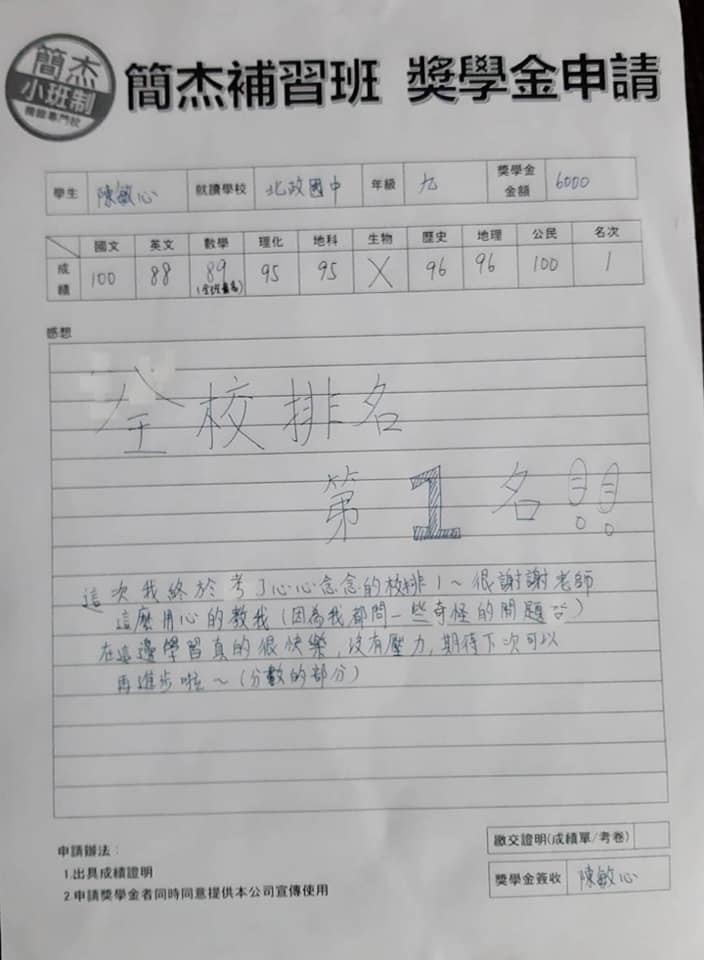 簡杰
小班制
簡杰補習班 獎學金申請
學生 陳敏心 就讀學校 北政國中 年級 九 獎學金金額 6000
國文 英文 數學 理化 地科 生物 歷史 地理 公民 名次
成績 100 88 89 95 95 X 96 96 100 1
感想
全校排名
第1名!!
這次我終於考了心心念念的校排1~很謝謝老師
這麼用心的教我(因為我都問一些奇怪的問題
在這邊學習真的很快樂,沒有壓力,期待下次可以
再進步啦~(分數的部分)
申請辦法:
1.出具成績證明
2.申請獎學金者同時同意提供本公司宣傳使用
繳交證明(成績單/考卷)
獎學金簽收 陳敏心